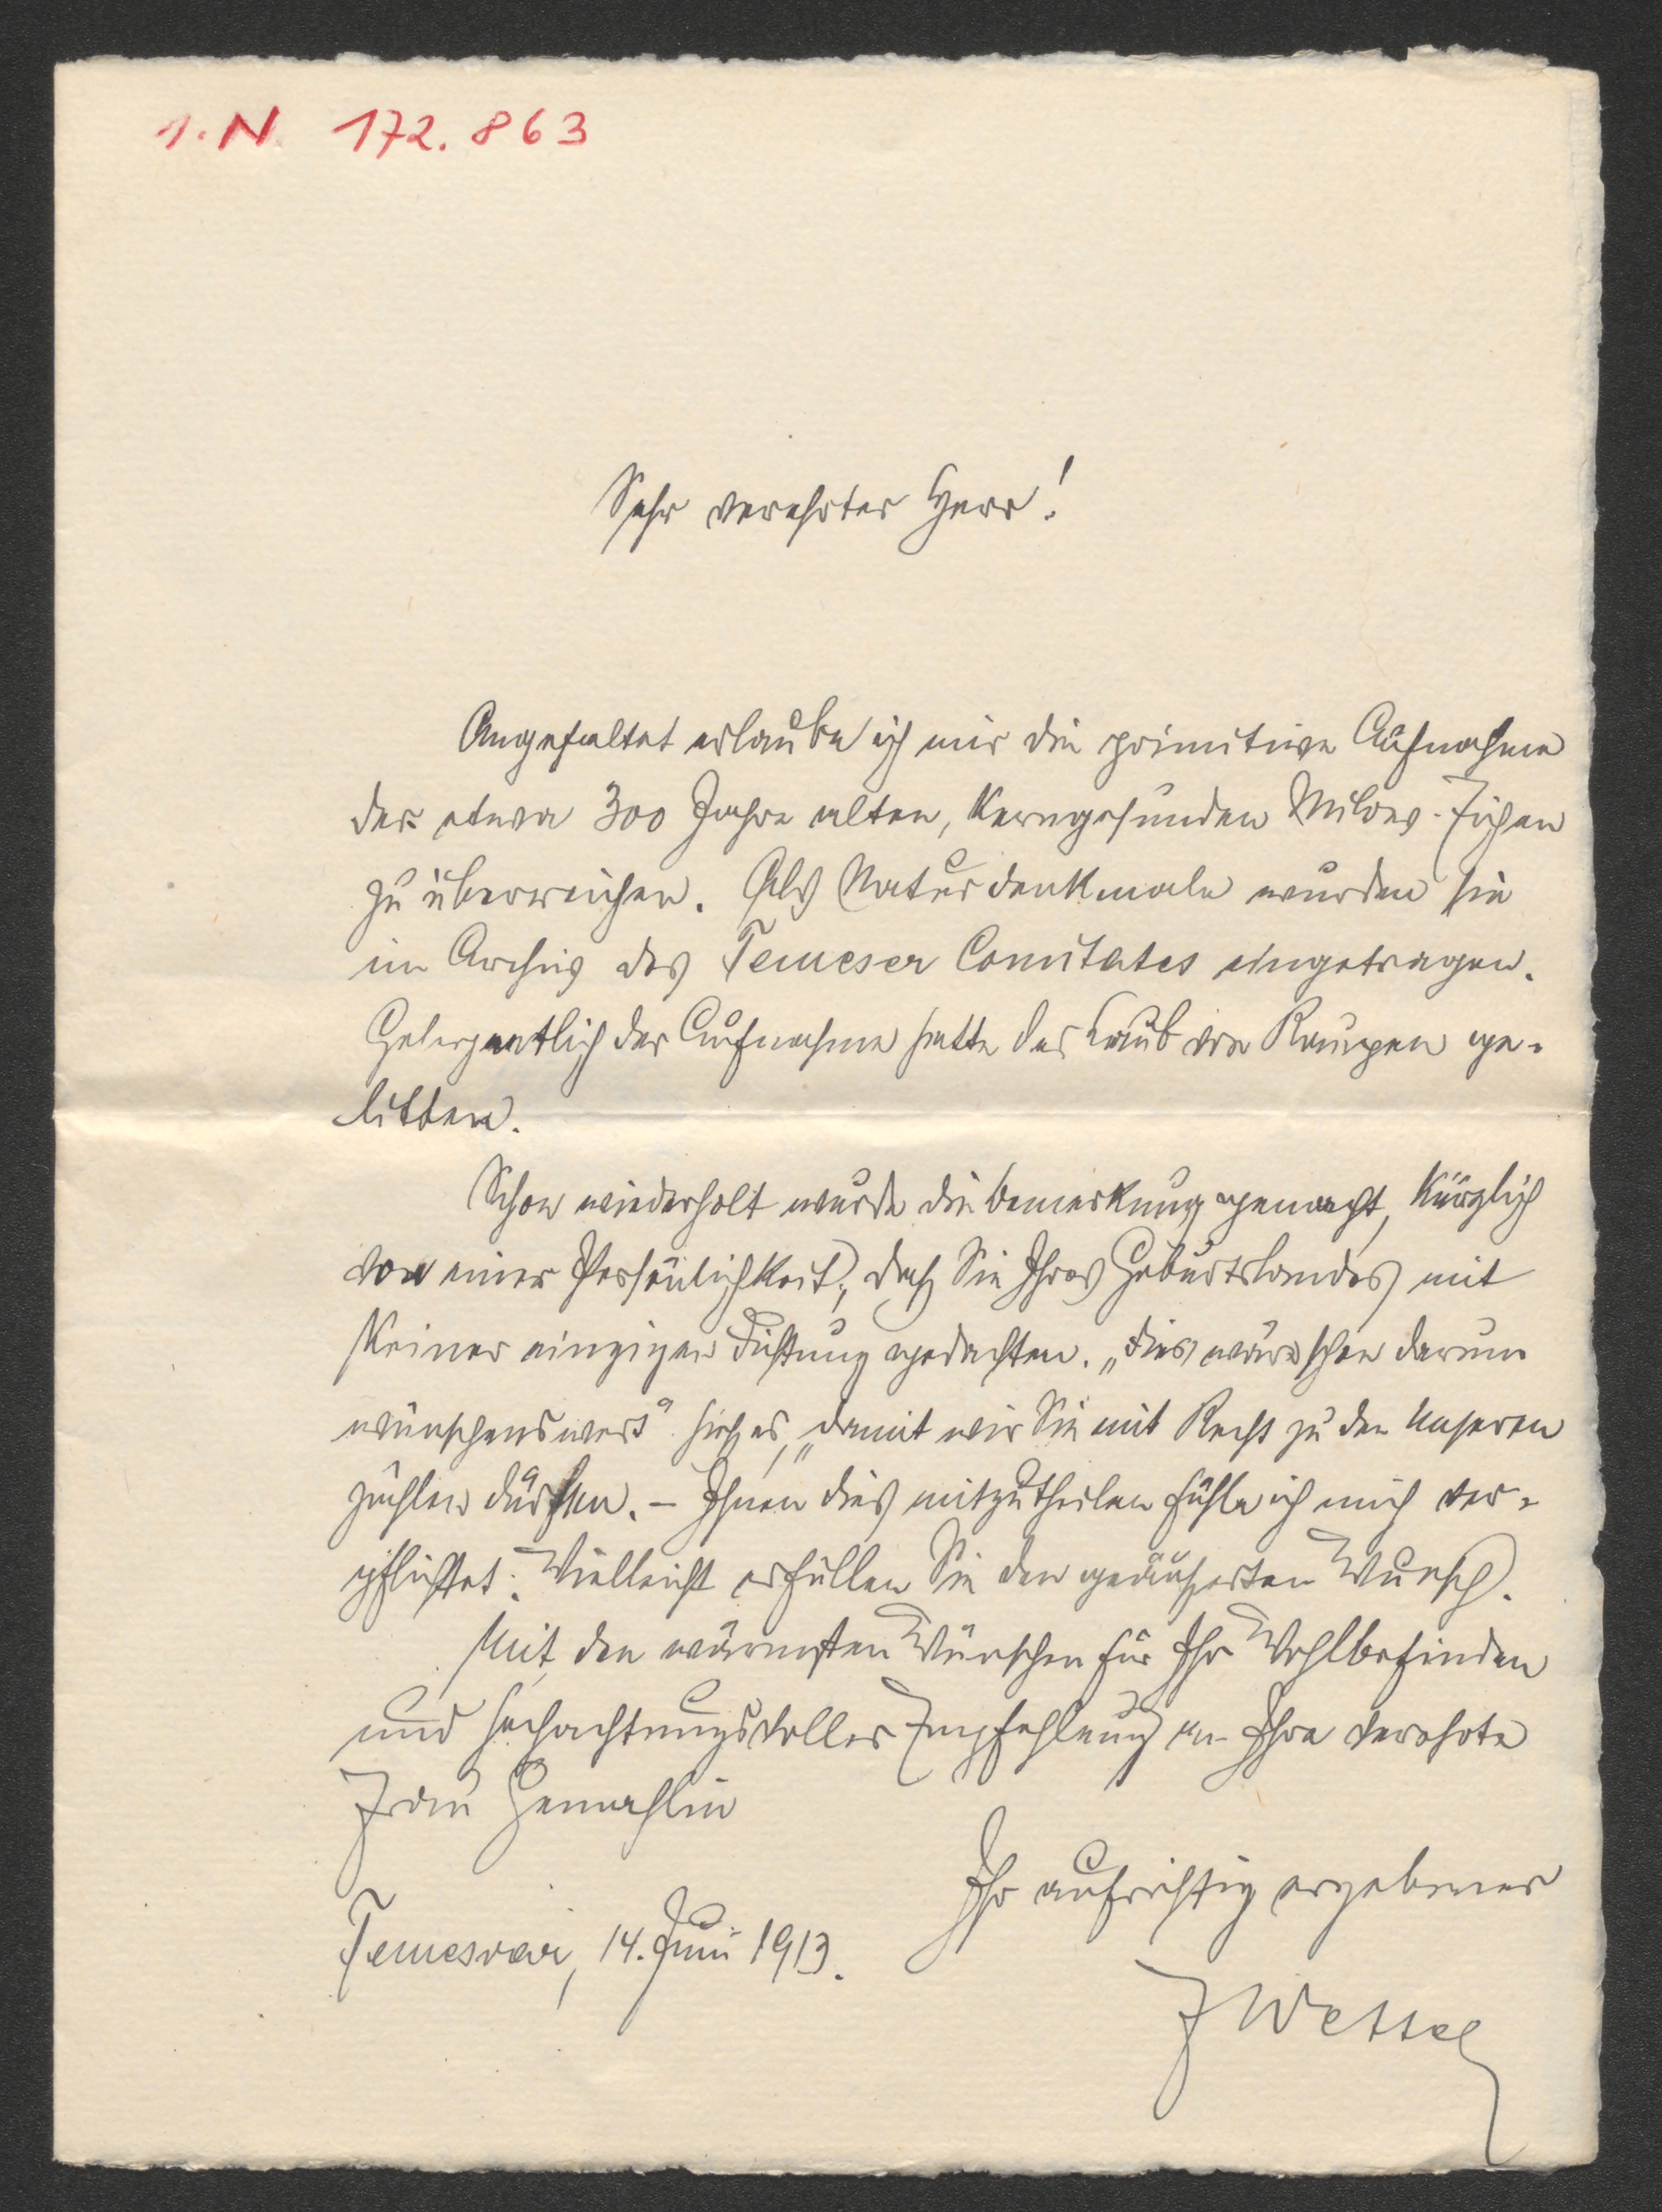 I.N. 172.863
Sehr verehrter Herr!
Angefaltet erlaube ich mir die primitive Aufnahme
der etwa 300 Jahre alten, kerngesunden Eichen
zu überreichen. Als Naturdenkmale wurden sie
im Archiv des Temeser Comitates eingetragen.
Gelegentlich der Aufnahme hatte das Laub von Raupen ge-
litten.
Schon wiederholt wurde die Bemerkung gemacht, kürzlich
von einer Persönlichkeit, daß Sie Ihres Geburtslandes mit
keiner einzigen Dichtung gedachten. „Dies wäre schon darum
wünschenswert" hieß es, „damit wir Sie mit Recht zu den Unseren
zählen dürfen. – Ihnen dies mitzutheilen fühle ich mich ver-
pflichtet. Vielleicht erfüllen Sie den geäußerten Wunsch.
Mit den wärmsten Wünschen für Ihr Wohlbefinden
und hochachtungsvoller Empfehlung an Ihre verehrte
Frau Gemahlin
Ihr aufrichtig ergebener
Temesvár, 14. Juni 1913.
JWettel